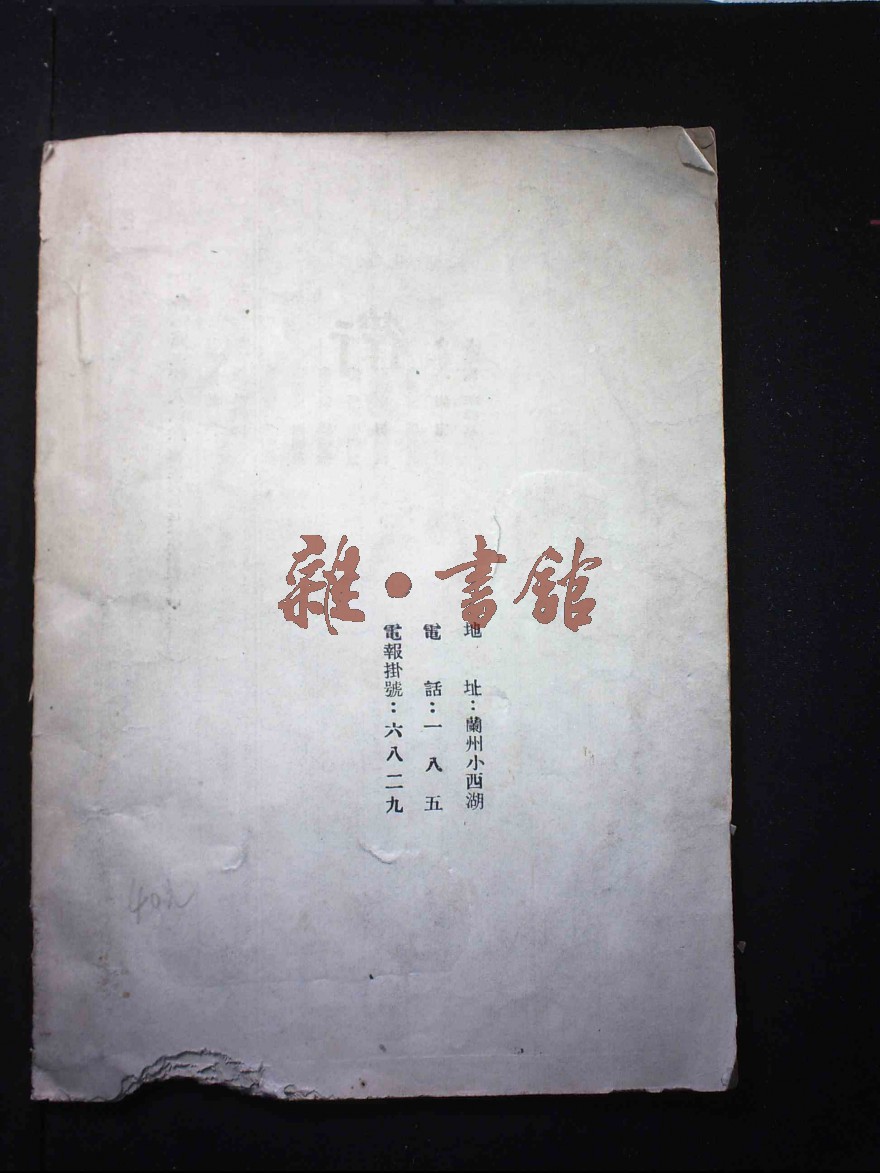 雜·書館
地址：蘭州小西湖
電話：一八五
電報掛號：六八二九